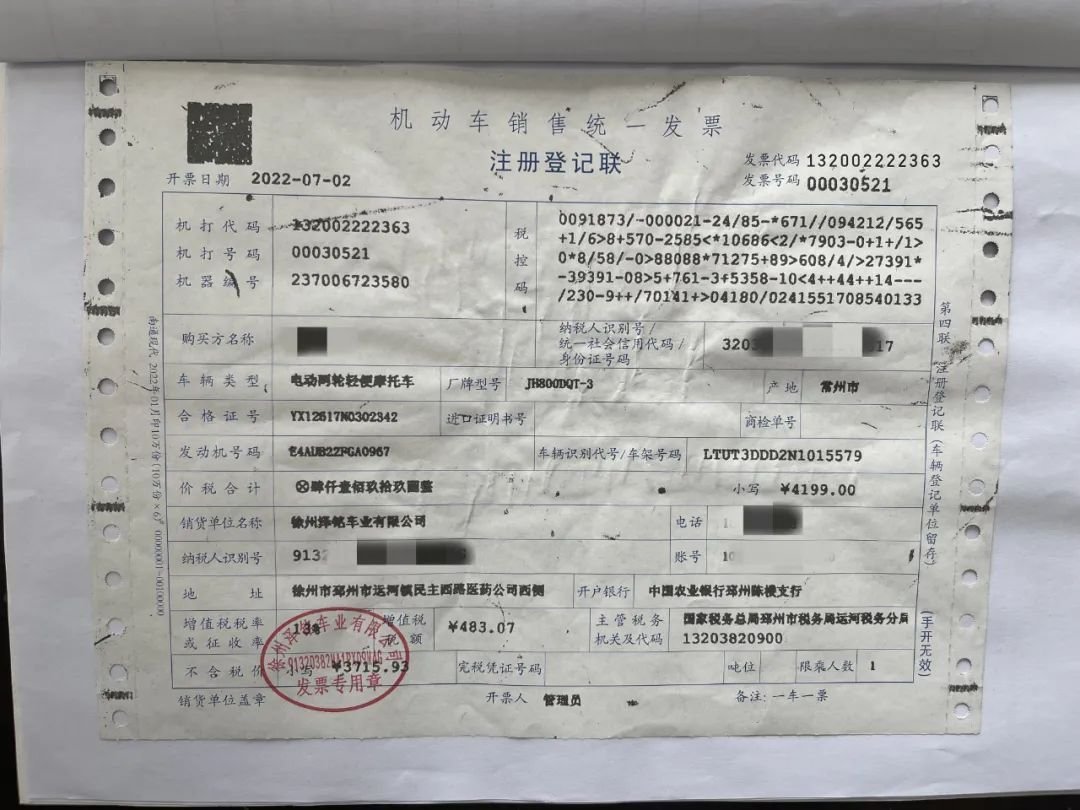 机动车销售统一发票
注册登记联
发票代码 132002222363
发票号码 00030521
开票日期 2022-07-02
机打代码 132002222363
机打号码 00030521
机器编号 237006723580
税控码
0091873/-000021-24/85-*671//094212/565
+1/6>8+570-2585<*10686<2/*7903-0+1+/1>
0*8/58/-0>88088*71275+89>608/4/>27391*
-39391-08>5+761-3+5358-10<4++44++14---
/230-9++/70141+>04180/0241551708540133
购买方名称
纳税人识别号/
统一社会信用代码/
身份证号码
3203 17
车辆类型 电动两轮轻便摩托车 厂牌型号 JH800DQT-3 产地 常州市
合格证号 YX12517N0302342 进口证明书号 商检单号
发动机号码 车辆识别代号/车架号码 LTUT3DDD2N1015579
价税合计 ⊗肆仟壹佰玖拾玖圆整 小写 ¥4199.00
销货单位名称 徐州泽铭车业有限公司 电话 1
纳税人识别号 913 账号 10
地址 徐州市邳州市运河镇民主西路医药公司西侧 开户银行 中国农业银行邳州陈楼支行
增值税税率或征收率 13% 增值税税额 ¥483.07 主管税务机关及代码 国家税务总局邳州市税务局运河税务分局
13203820900
不含税价 小写 ¥3715.93 完税凭证号码 吨位 限乘人数 1
销货单位盖章 开票人 管理员 备注:一车一票
徐州泽铭车业有限公司
发票专用章
第四联 注册登记联(车辆登记单位留存)
(手开无效)
南通现代 2022年01月印10万份(10万份×6) 00000001-00100000